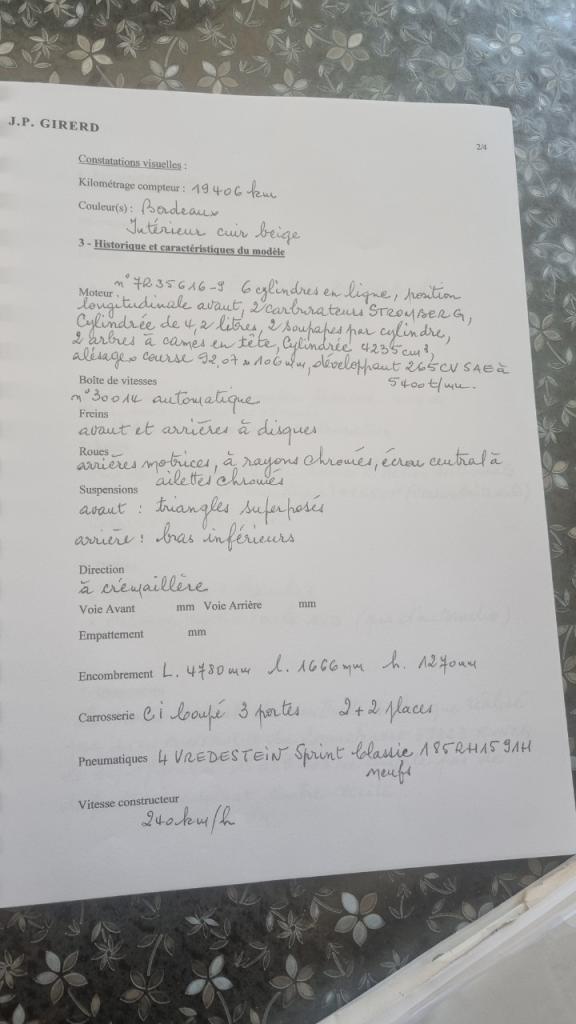 J.P. GIRERD
2/4
Constatations visuelles :
Kilométrage compteur : 19406 km
Couleur(s) : Bordeaux
Intérieur cuir beige
3 - Historique et caractéristiques du modèle
n° 7R35616-9 6 cylindres en ligne, position
Moteur
longitudinale avant, 2 carburateurs STROMBERG,
Cylindrée de 4,2 litres, 2 soupapes par cylindre,
2 arbres à cames en tête, Cylindrée 4235 cm³,
alésage course 92,07 x 106 mm, développant 265 CV SAE à
5400 t/mn.
Boîte de vitesses
n° 30014 automatique
Freins
avant et arrières à disques
Roues
arrières motrices, à rayons chromés, écrou central à
ailettes chromés
Suspensions
avant : triangles superposés
arrière : bras inférieurs
Direction
à crémaillère
Voie Avant mm Voie Arrière mm
Empattement mm
Encombrement L. 4780 mm l. 1666 mm h. 1270 mm
Carrosserie Ci Coupé 3 portes 2+2 places
Pneumatiques 4 VREDESTEIN Sprint Classic 185RH15 91H
neufs
Vitesse constructeur
240 km/h